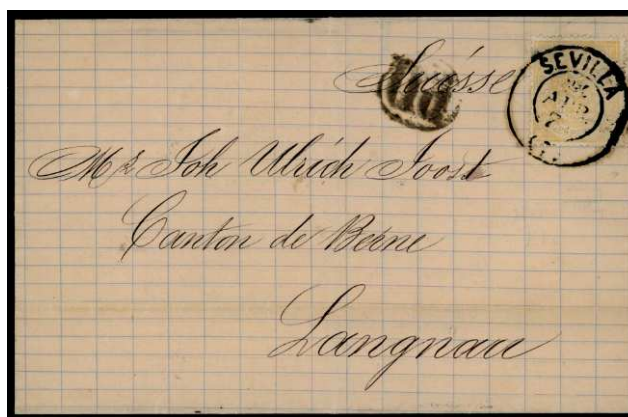 Suisse
SEVILLA
Mr Joh Ulrich Joost
Canton de Berne
Langnau